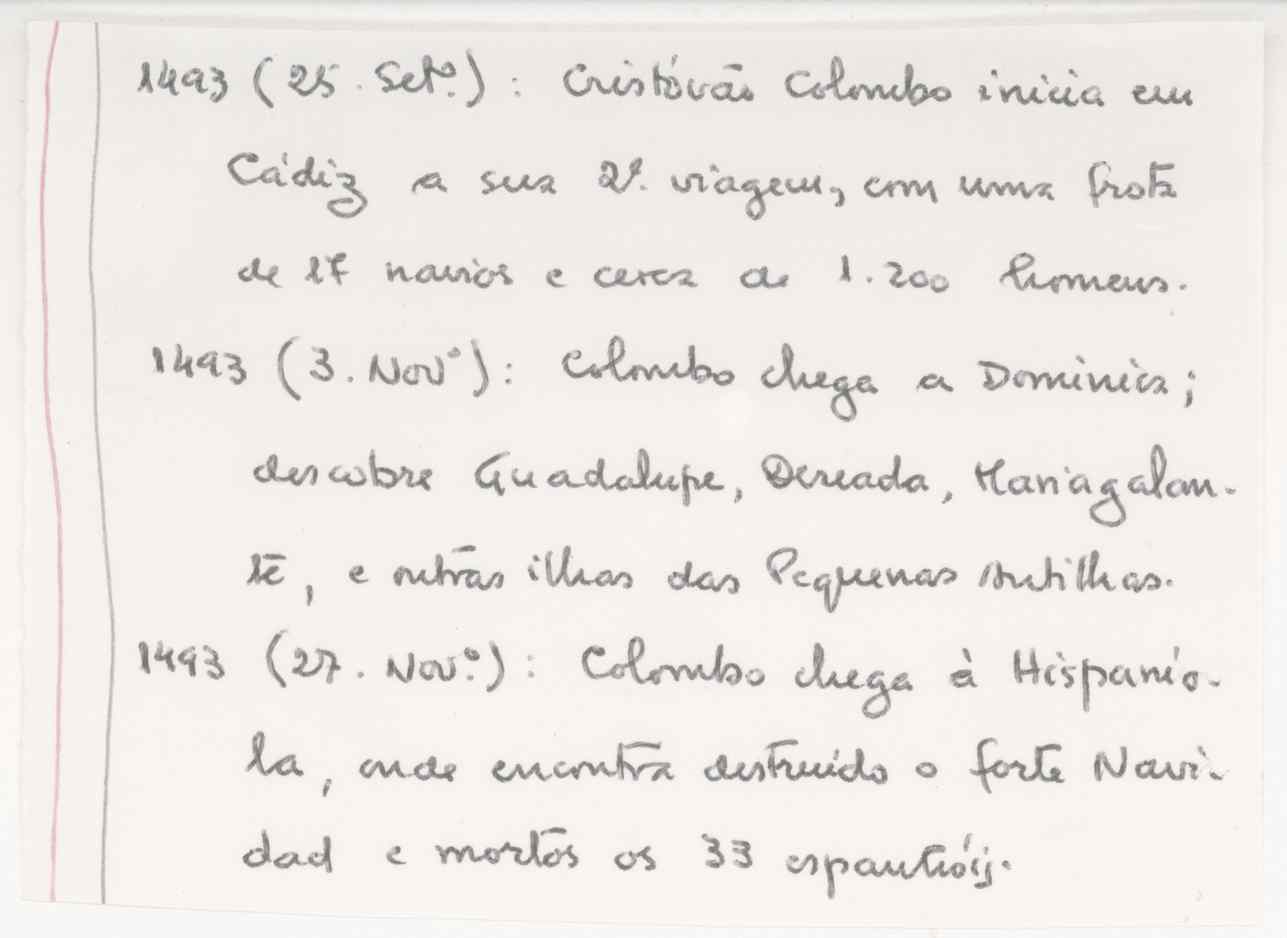 1493 (25. Setº.) : Cristóvão Colombo inicia em
Cádiz a sua 2ª. viagem, com uma frota
de 17 navios e cerca de 1.200 homens.
1493 (3. Novº) : Colombo chega a Dominica;
descobre Guadalupe, Deseada, Mariagalan-
te, e outras ilhas das Pequenas Antilhas.
1493 (27. Novº.) : Colombo chega à Hispanio-
la, onde encontra destruído o forte Navi-
dad e mortos os 33 espanhóis.